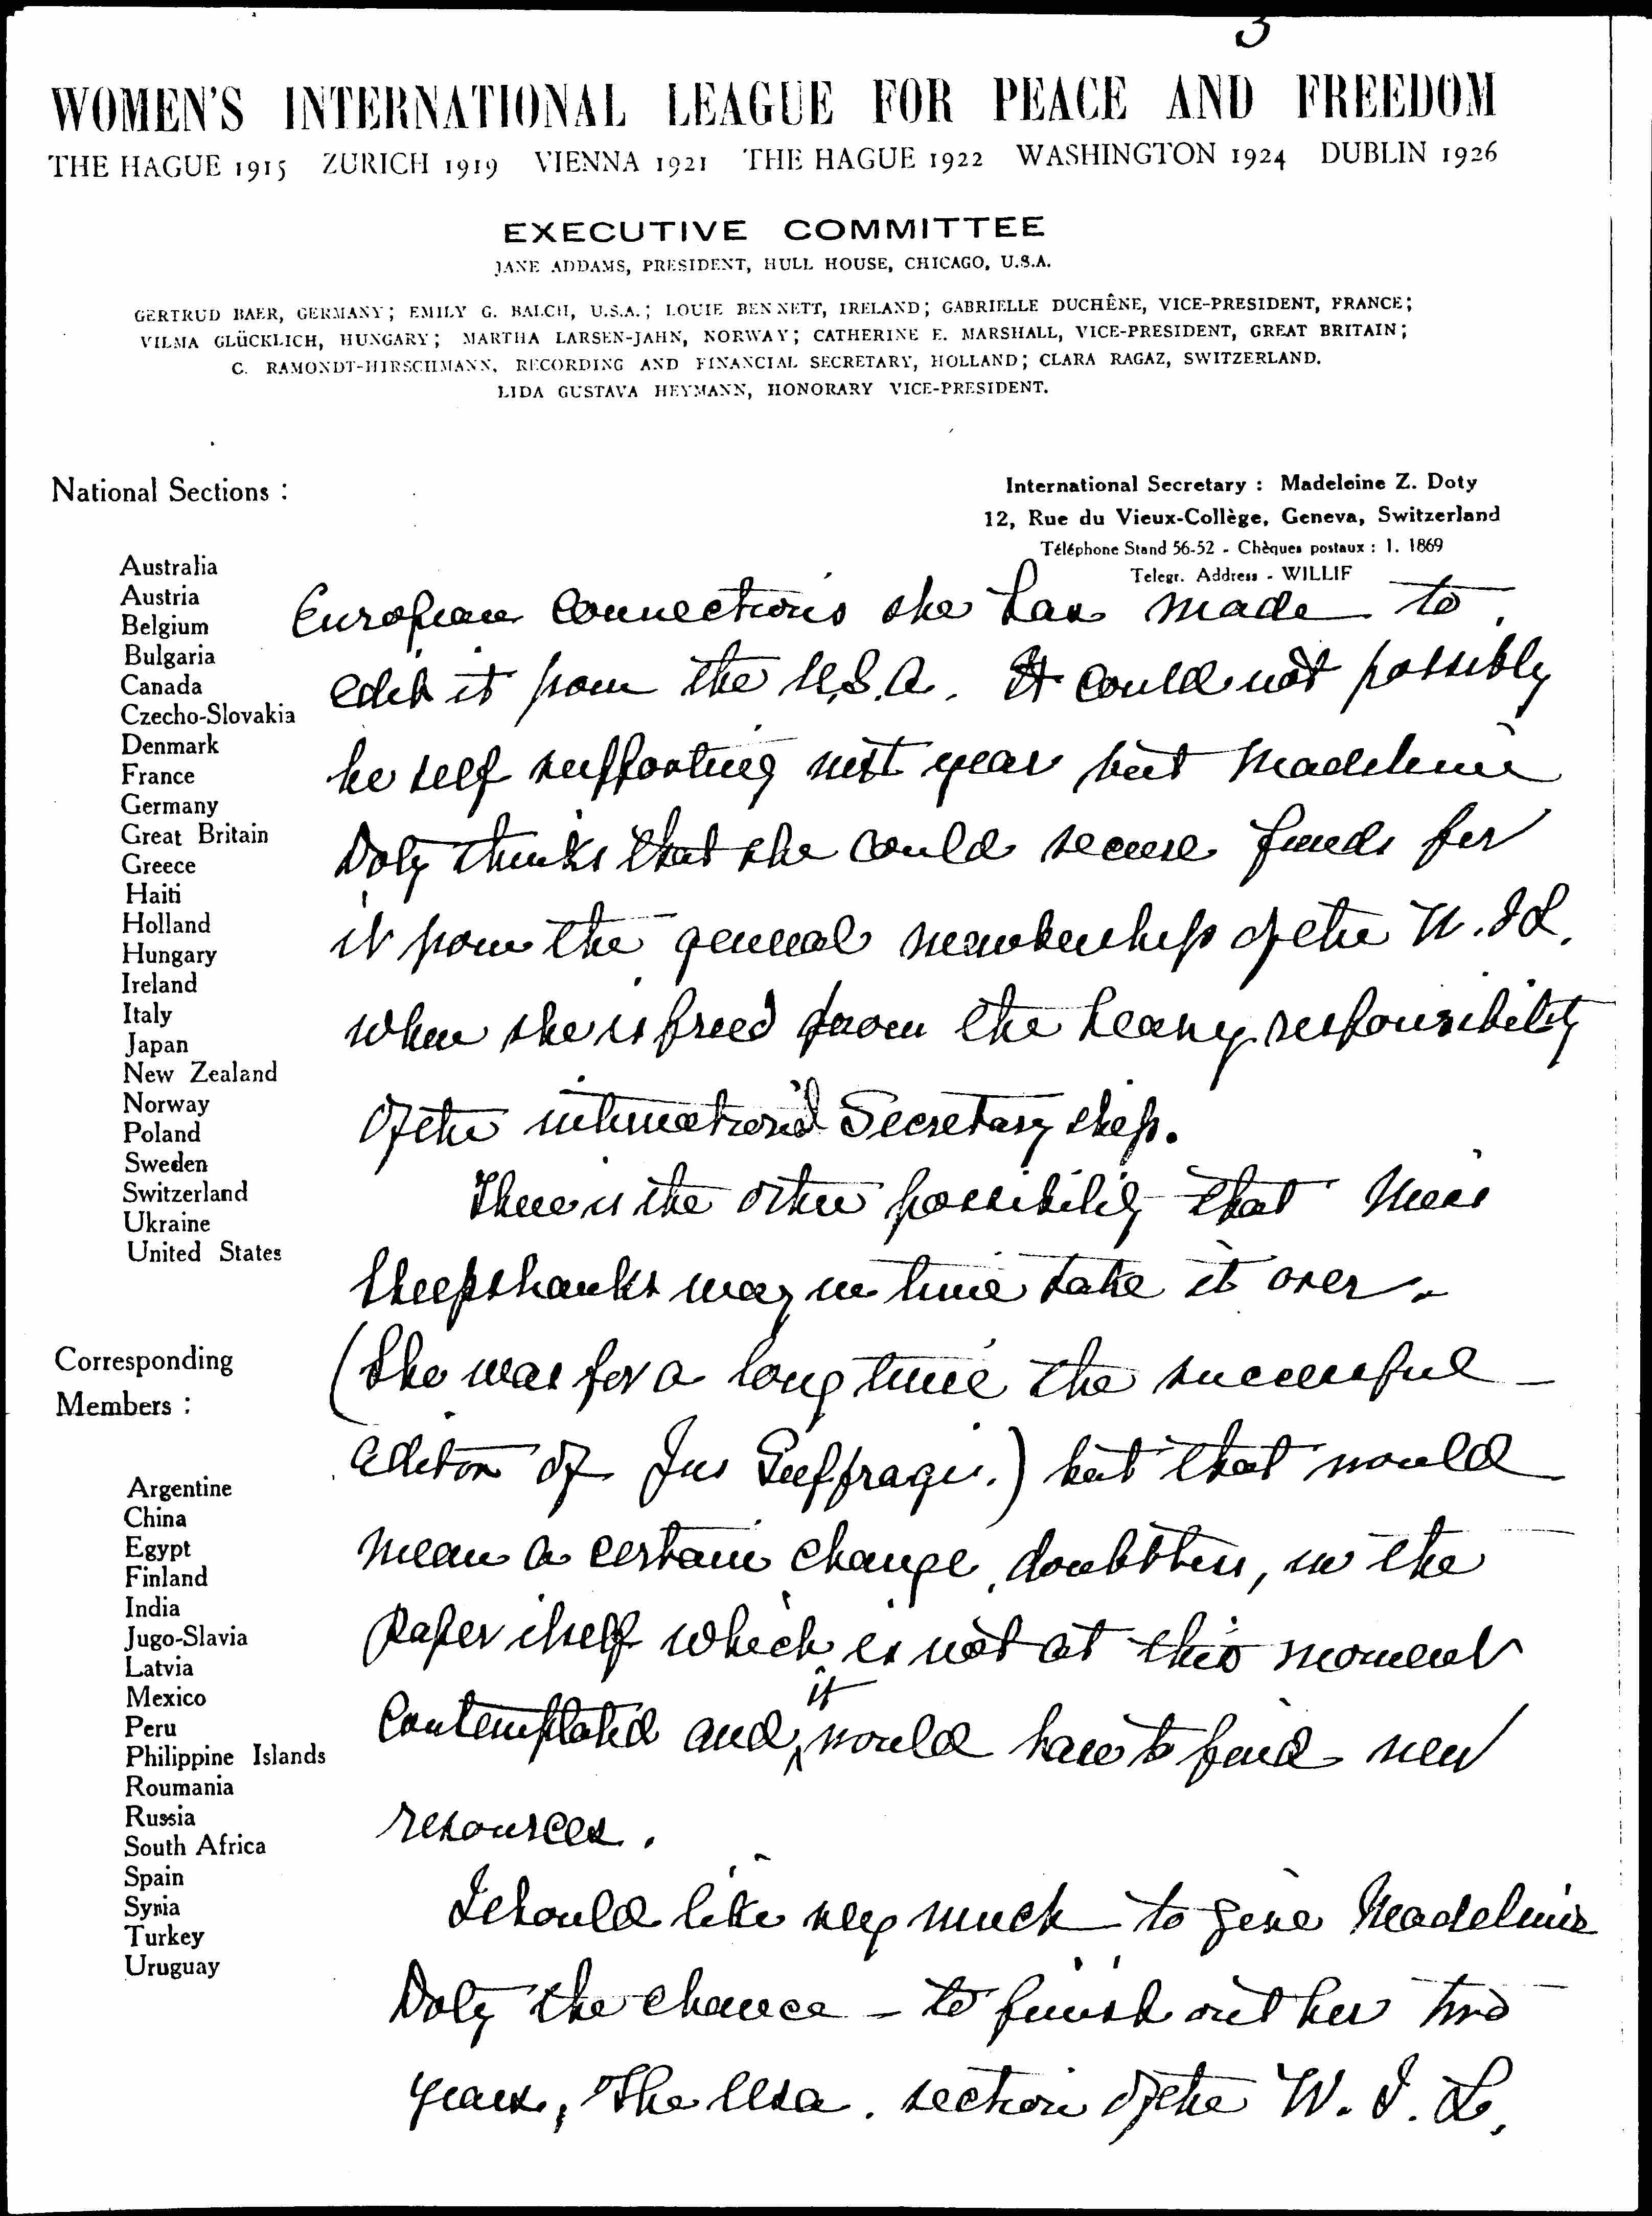 3
WOMEN'S INTERNATIONAL LEAGUE FOR PEACE AND FREEDOM
THE HAGUE 1915 ZURICH 1919 VIENNA 1921 THE HAGUE 1922 WASHINGTON 1924 DUBLIN 1926
EXECUTIVE COMMITTEE
JANE ADDAMS, PRESIDENT, HULL HOUSE, CHICAGO, U.S.A.
GERTRUD BAER, GERMANY; EMILY G. BALCH, U.S.A.; LOUIE BENNETT, IRELAND; GABRIELLE DUCHÊNE, VICE-PRESIDENT, FRANCE;
VILMA GLÜCKLICH, HUNGARY; MARTHA LARSEN-JAHN, NORWAY; CATHERINE E. MARSHALL, VICE-PRESIDENT, GREAT BRITAIN;
C. RAMONDT-HIRSCHMANN, RECORDING AND FINANCIAL SECRETARY, HOLLAND; CLARA RAGAZ, SWITZERLAND.
LIDA GUSTAVA HEYMANN, HONORARY VICE-PRESIDENT.
National Sections :
Australia
Austria
Belgium
Bulgaria
Canada
Czecho-Slovakia
Denmark
France
Germany
Great Britain
Greece
Haiti
Holland
Hungary
Ireland
Italy
Japan
New Zealand
Norway
Poland
Sweden
Switzerland
Ukraine
United States
Corresponding
Members :
Argentine
China
Egypt
Finland
India
Jugo-Slavia
Latvia
Mexico
Peru
Philippine Islands
Roumania
Russia
South Africa
Spain
Syria
Turkey
Uruguay
International Secretary : Madeleine Z. Doty
12, Rue du Vieux-Collège, Geneva, Switzerland
Téléphone Stand 56-52 - Chèques postaux : I. 1869
Telegr. Address - WILLIF
European connections she has made to
edit it from the U.S.A. It could not possibly
be self supporting next year but Madeleine
Doty thinks that she could secure funds for
it from the general membership of the W.I.L.
when she is freed from the heavy responsibility
of the internation'l Secretary ship.
There is the other possibility that Miss
Sheepshanks may in time take it over.
(She was for a long time the successful
editor of Jus Suffragii.) but that would
mean a certain change, doubtless, in the
paper itself which is not at this moment
contemplated and it would have to find new
resources.
I should like very much to give Madeleine
Doty the chance - to finish out her two
years, The Usa. section of the W. I. L.